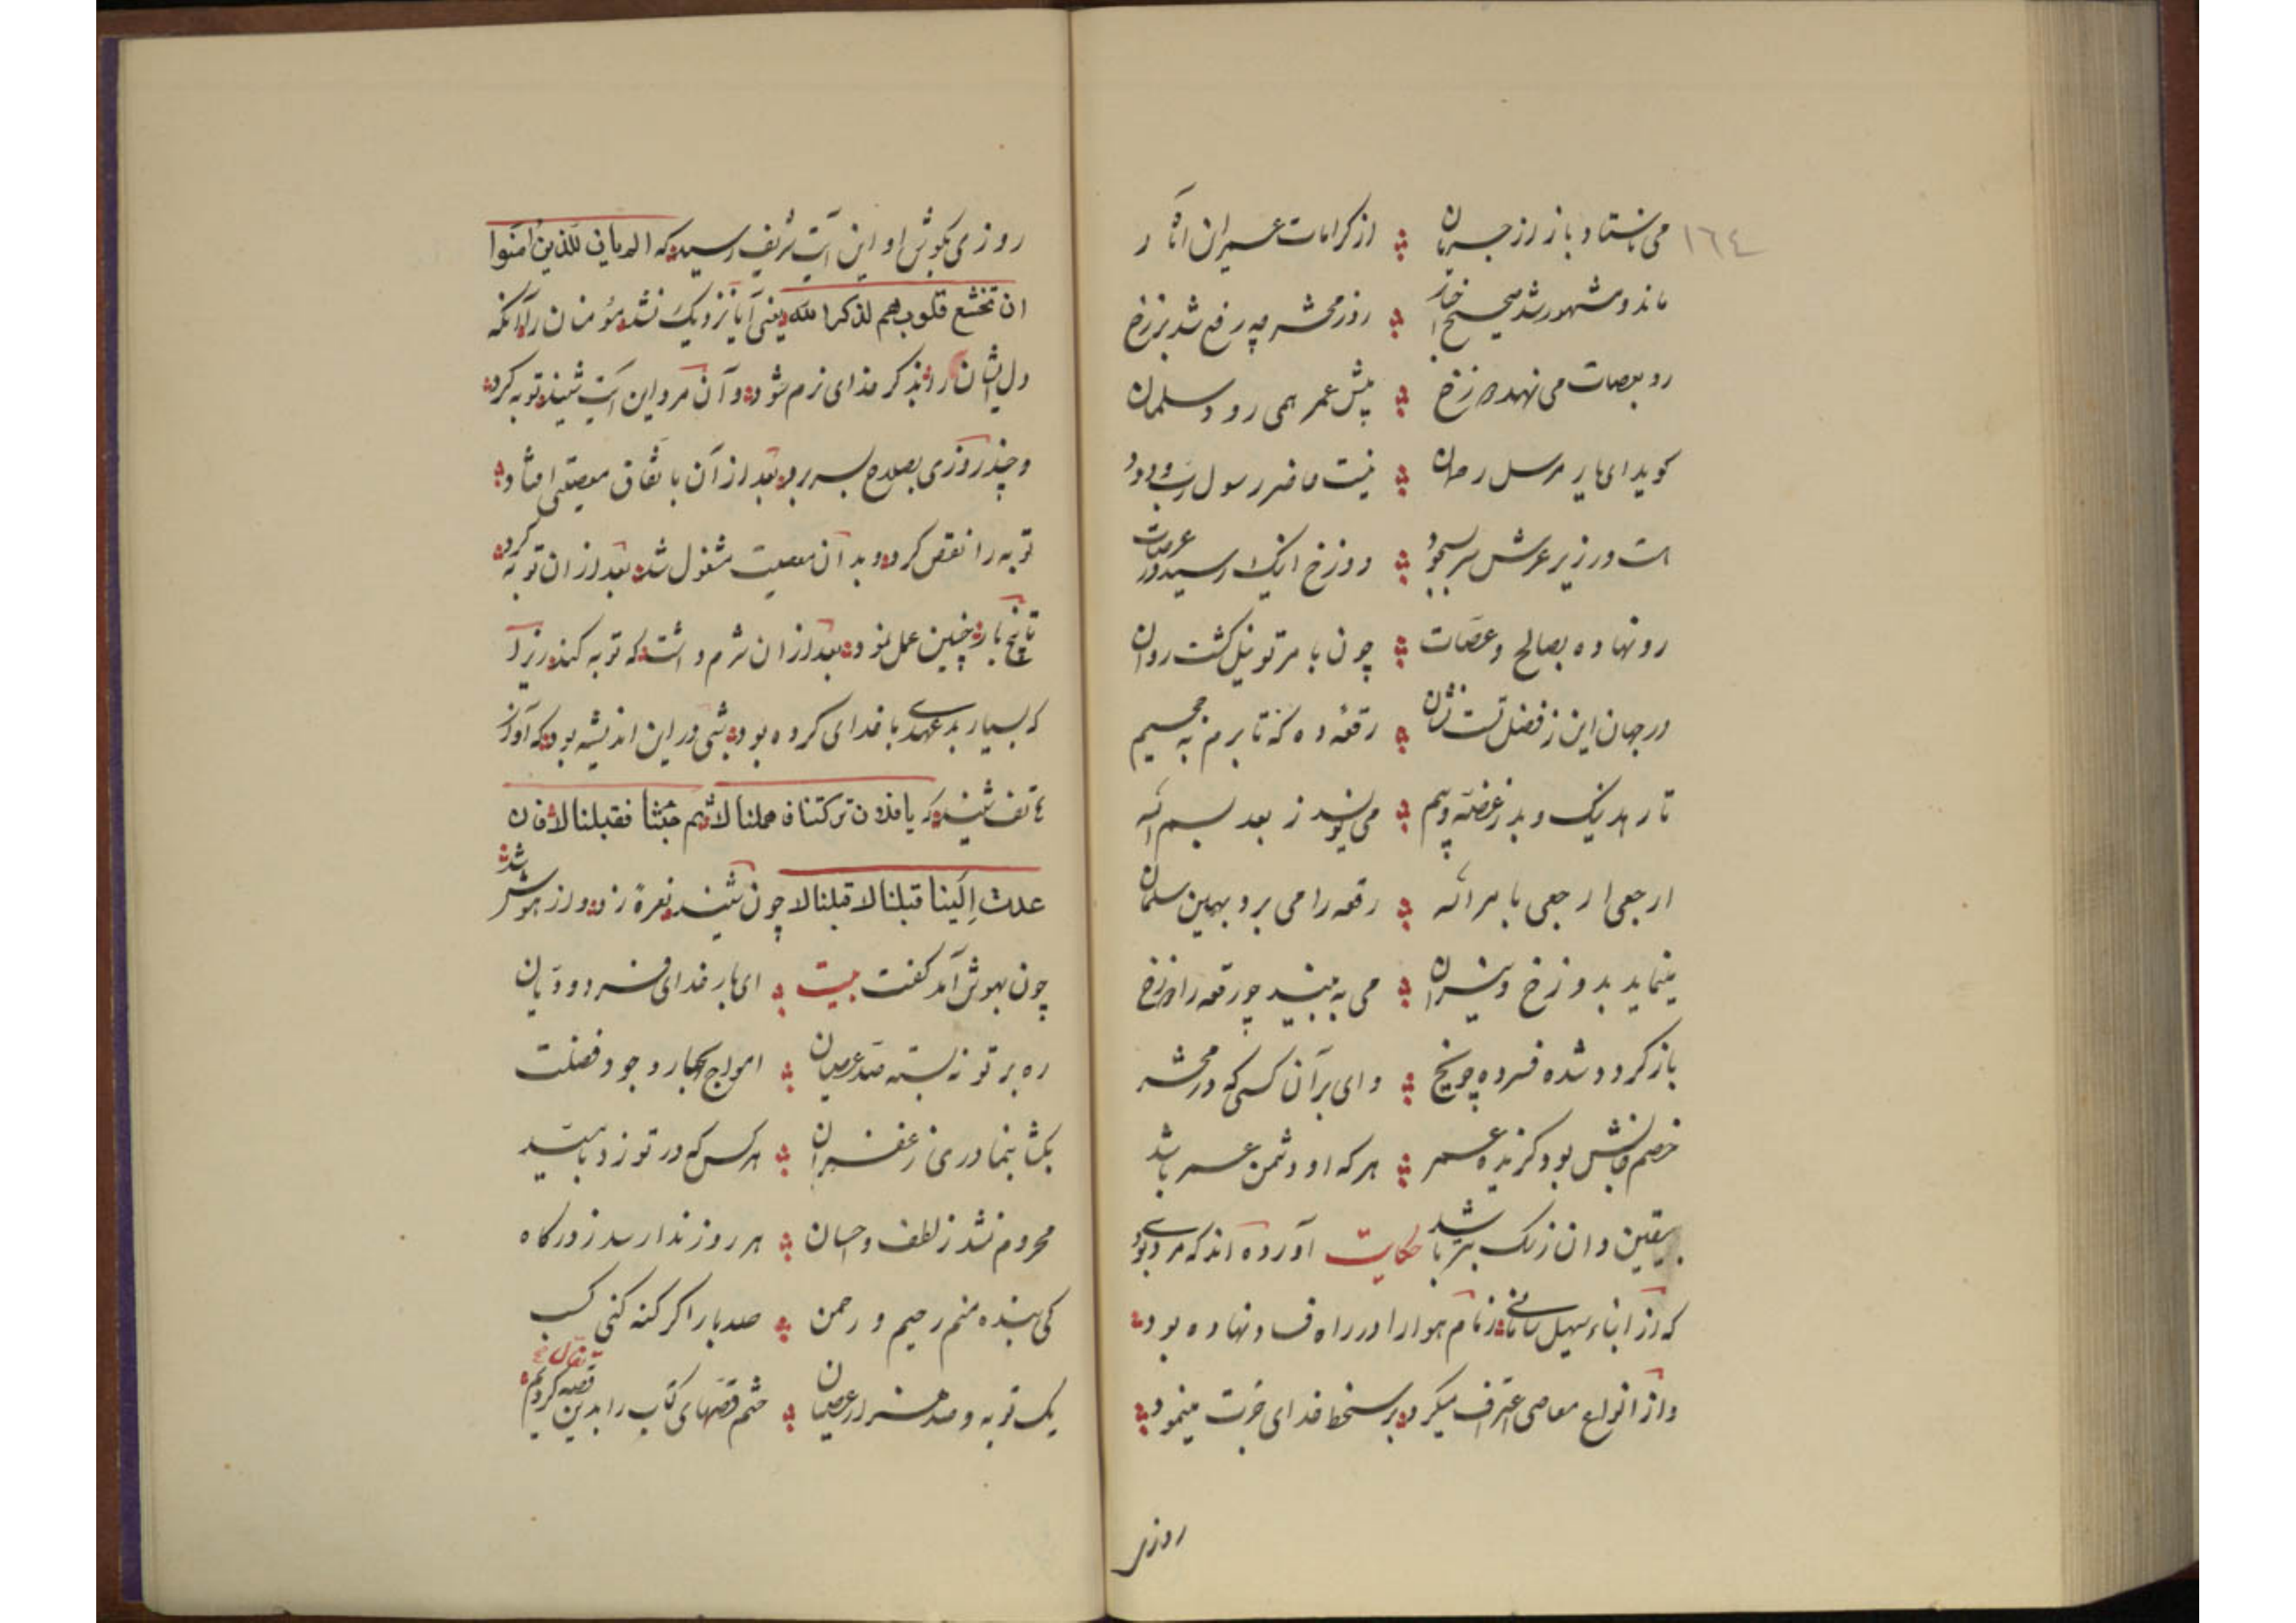 ١٦٤
می باستاد باز از جریان از کرامات عمر این آثار
ماند و مشهور شد صحیح اخبار روز محشر چه رفع شد برزخ
رو بعصات می نهد دوزخ پیش عمر همی رود سلمان
کوید ای یار مرسل رحمان نیست حاضر رسول رب ودود
است در زیر عرش سر بسجود دوزخ اینک رسید در عرصات
رو نهاده بصالح و عصات چون بامر تو نیل کشت روان
در جهان این ز فضل تست نشان رقعه ده که تا برم به جحیم
تا رهد نیک و بد ز غصه و بیم می نویسد ز بعد بسم الله
ارجعی ارجعی بامر اله رقعه را می برد بهین سلمان
مینماید بدوزخ و نیران می به بیند چو رقعه را دوزخ
باز کردد شده فسرده چو یخ وای بر آن کسی که در محشر
خصم جانش بود کزیده عمر هر که او دشمن عمر باشد
بیقین دان ز سک بتر باشد حکایت آورده اند که مردی بود
که از ابناء سهیل سامانی زمام هوا را در راه فساد نهاده بود
و از انواع معاصی اعتراف میکرد بر سخط خدای غربت مینمود
روزی
روزی بکوش او این آیت شریف رسید که الم یان للذین امنوا
ان تخشع قلوبهم لذکر الله یعنی آیا نزدیک نشد مؤمنان را آنکه
دل ایشان را بذکر خدای نرم شود و آن مرد این آیت شنید توبه کرد
و چند روزی بصلاح بسر برد بعد از آن باتفاق معصیتی افتاد
توبه را نقض کرد و بدان معصیت مشغول شد بعد از ان توبه کرد
تا پنج بار چنین عمل نمود بعد از ان شرم داشت که توبه کند زیرا
که بسیار بدعهدی با خدای کرده بود شبی در این اندیشه بود که آواز
هاتف شنید که یا فلان ترکتنا فامهلنا لا ثم جئتنا فقبلنا لا فان
عدت الینا قبلنا لا قبلنا لا چون شنید نعرهٔ زد و از هوش شد
چون بهوش آمد کفت بیت ای بار خدای فرد و دیان
ره بر تو نه بسته صد عصیان امواج بحار وجود فضلت
بکشا بنما دری ز غفران هر کس که در تو زد بامید
محروم نشد ز لطف و احسان هر روز ندا رسد ز درکاه
کی بنده منم رحیم و رحمن صد بار اکر کنه کنی کسب
یک توبه و صد هزار عصیان ختم قصهای کتاب را بدین قصه کردیم